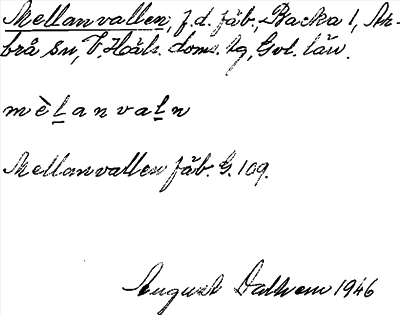 Mellanvallen, f.d. fäb., Backa 1, Ar-
brå sn, V. Häls. doms. tg, Gvl. län.
mèl̲anval̲n
Mellanvallen fäb. G. 109.
August Dalhem 1946